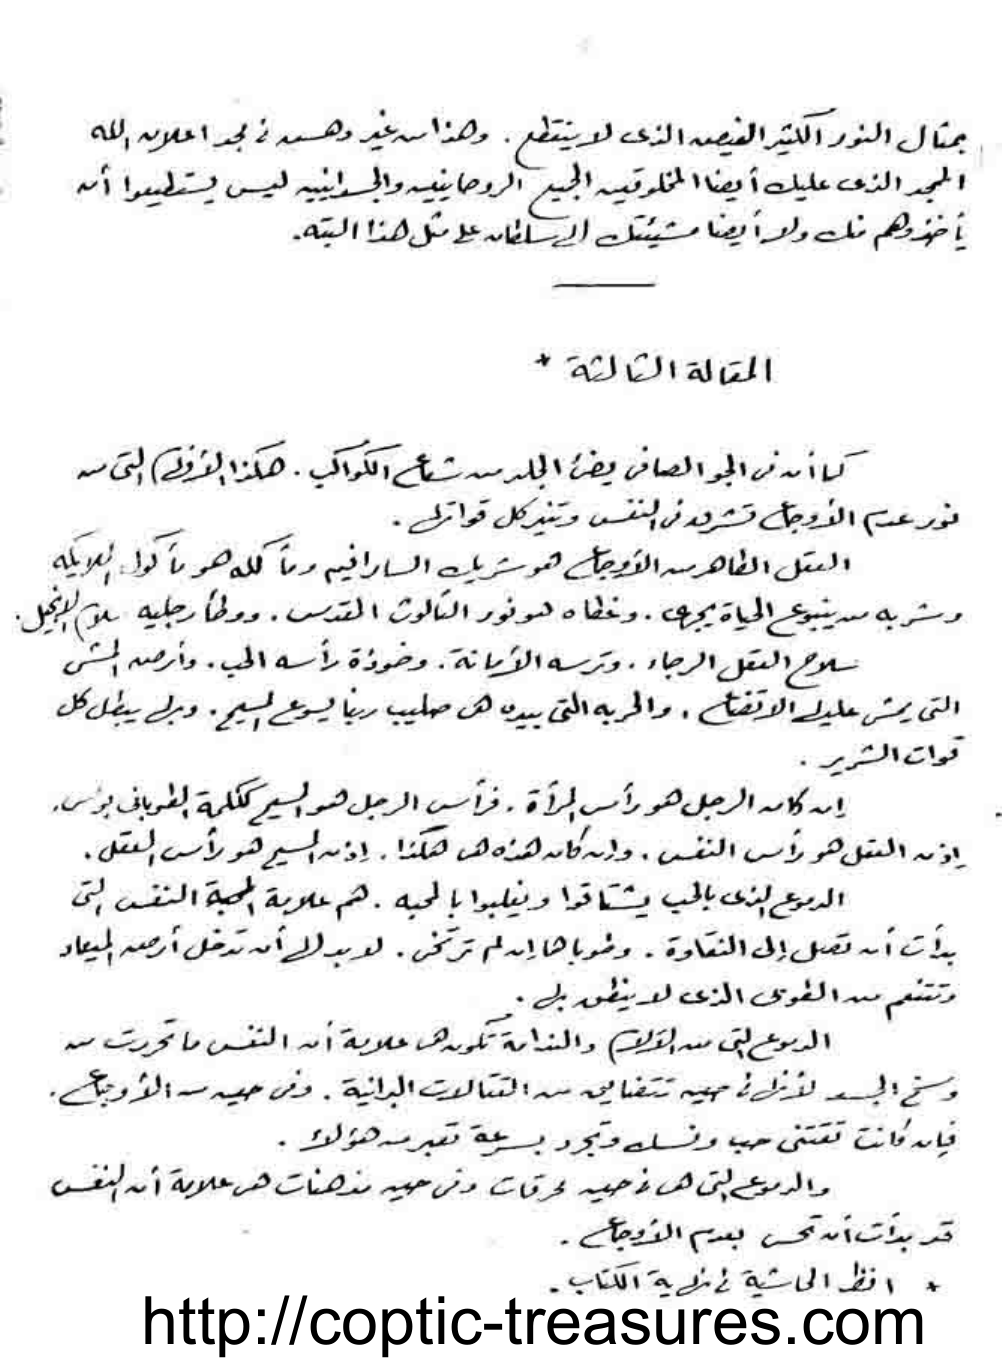 بمثال النور الكثير الفيض الذى لا ينقطع . وهذا من غير وهن فى مجد اعلان الله
المجد الذى عليك أيضا المخلوقين الجميع الروحانيين والجسدانيين ليس يستطيعوا أن
يأخذوهم منك ولا أيضا مشيئتك الى سلطان على مثل هذا البته .
المقالة الثالثة *
كما أن فى الجو الصافى يضئ الجلد من شعاع الكواكب . هكذا الأفكار التى من
نور عدم الأوجاع تشرق فى النفس وتنير كل قواتها .
العقل الطاهر من الأوجاع هو شريك السارافيم ومأكله هو مأكول الملايكه
وشربه من ينبوع الحياة يجرى . وغطاه هو نور الثالوث المقدس . ووطأ رجليه سلام الإنجيل .
سلاح العقل الرجاء . وترسه الأمانة . وخوذة رأسه الحب . وأرض المشى
التى يمشى عليها الاتضاع . والحربه التى بيده هى صليب ربنا يسوع المسيح . وبها يبطل كل
قوات الشرير .
إن كان الرجل هو رأس المرأة . فرأس الرجل هو المسيح ككلمة الطوبانى بولس .
إذن العقل هو رأس النفس . وإن كان هذه هى هكذا . إذن المسيح هو رأس العقل .
الدموع الذى بالحب يشتاقوا ويغلبوا بالمحبه . هم علامة المحبة النفس التى
بدأت أن تصل إلى النقاوة . وطوباها إن لم ترتخى . لا بد لها أن تدخل أرض الميعاد
وتتنعم من الطوبى الذى لا ينطق بها .
الدموع التى من الآلام والندامة تكون هى علامة أن النفس ما تحررت من
وسخ الجسد لأنها فى حين تتضايق من القتالات البرانية . وفى حين من الأوجاع .
فإن كانت تقتنى حب ونسك وتجرد بسرعة تعبر من هؤلاء .
والدموع التى هى فى حين محرقات وفى حين مدهنات هى علامة أن النفس
قد بدأت أن تحس بعدم الأوجاع .
* انظر الحاشية فى نهاية الكتاب .
http://coptic-treasures.com